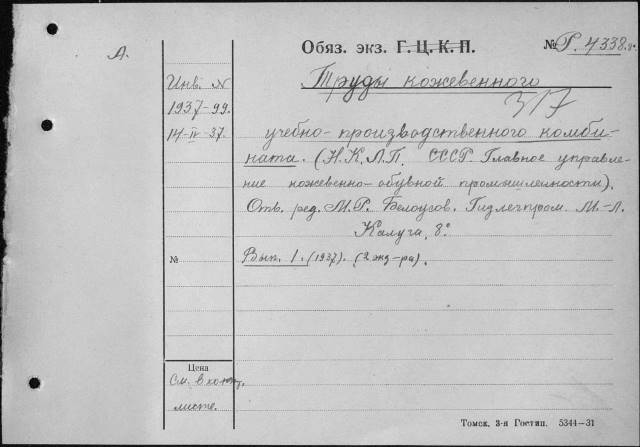 А.
Обяз. экз. Г. Ц. К. П.
№ Р. 4338.
Инв. N
1937-99.
14-II-37.
Труды кожевенного
317
учебно-производственного комби-
ната. (Н.К.Л.П. СССР. Главное управле-
ние кожевенно-обувной промышленности).
Отв. ред. М.Р. Белоусов. Гизлегпром. М.-Л.
Калуга, 8°
№
Вып. 1. (1937). (2 экз-ра).
Цена
См. в конт.
листе.
Томск, 3-я Гостип. 5344—31